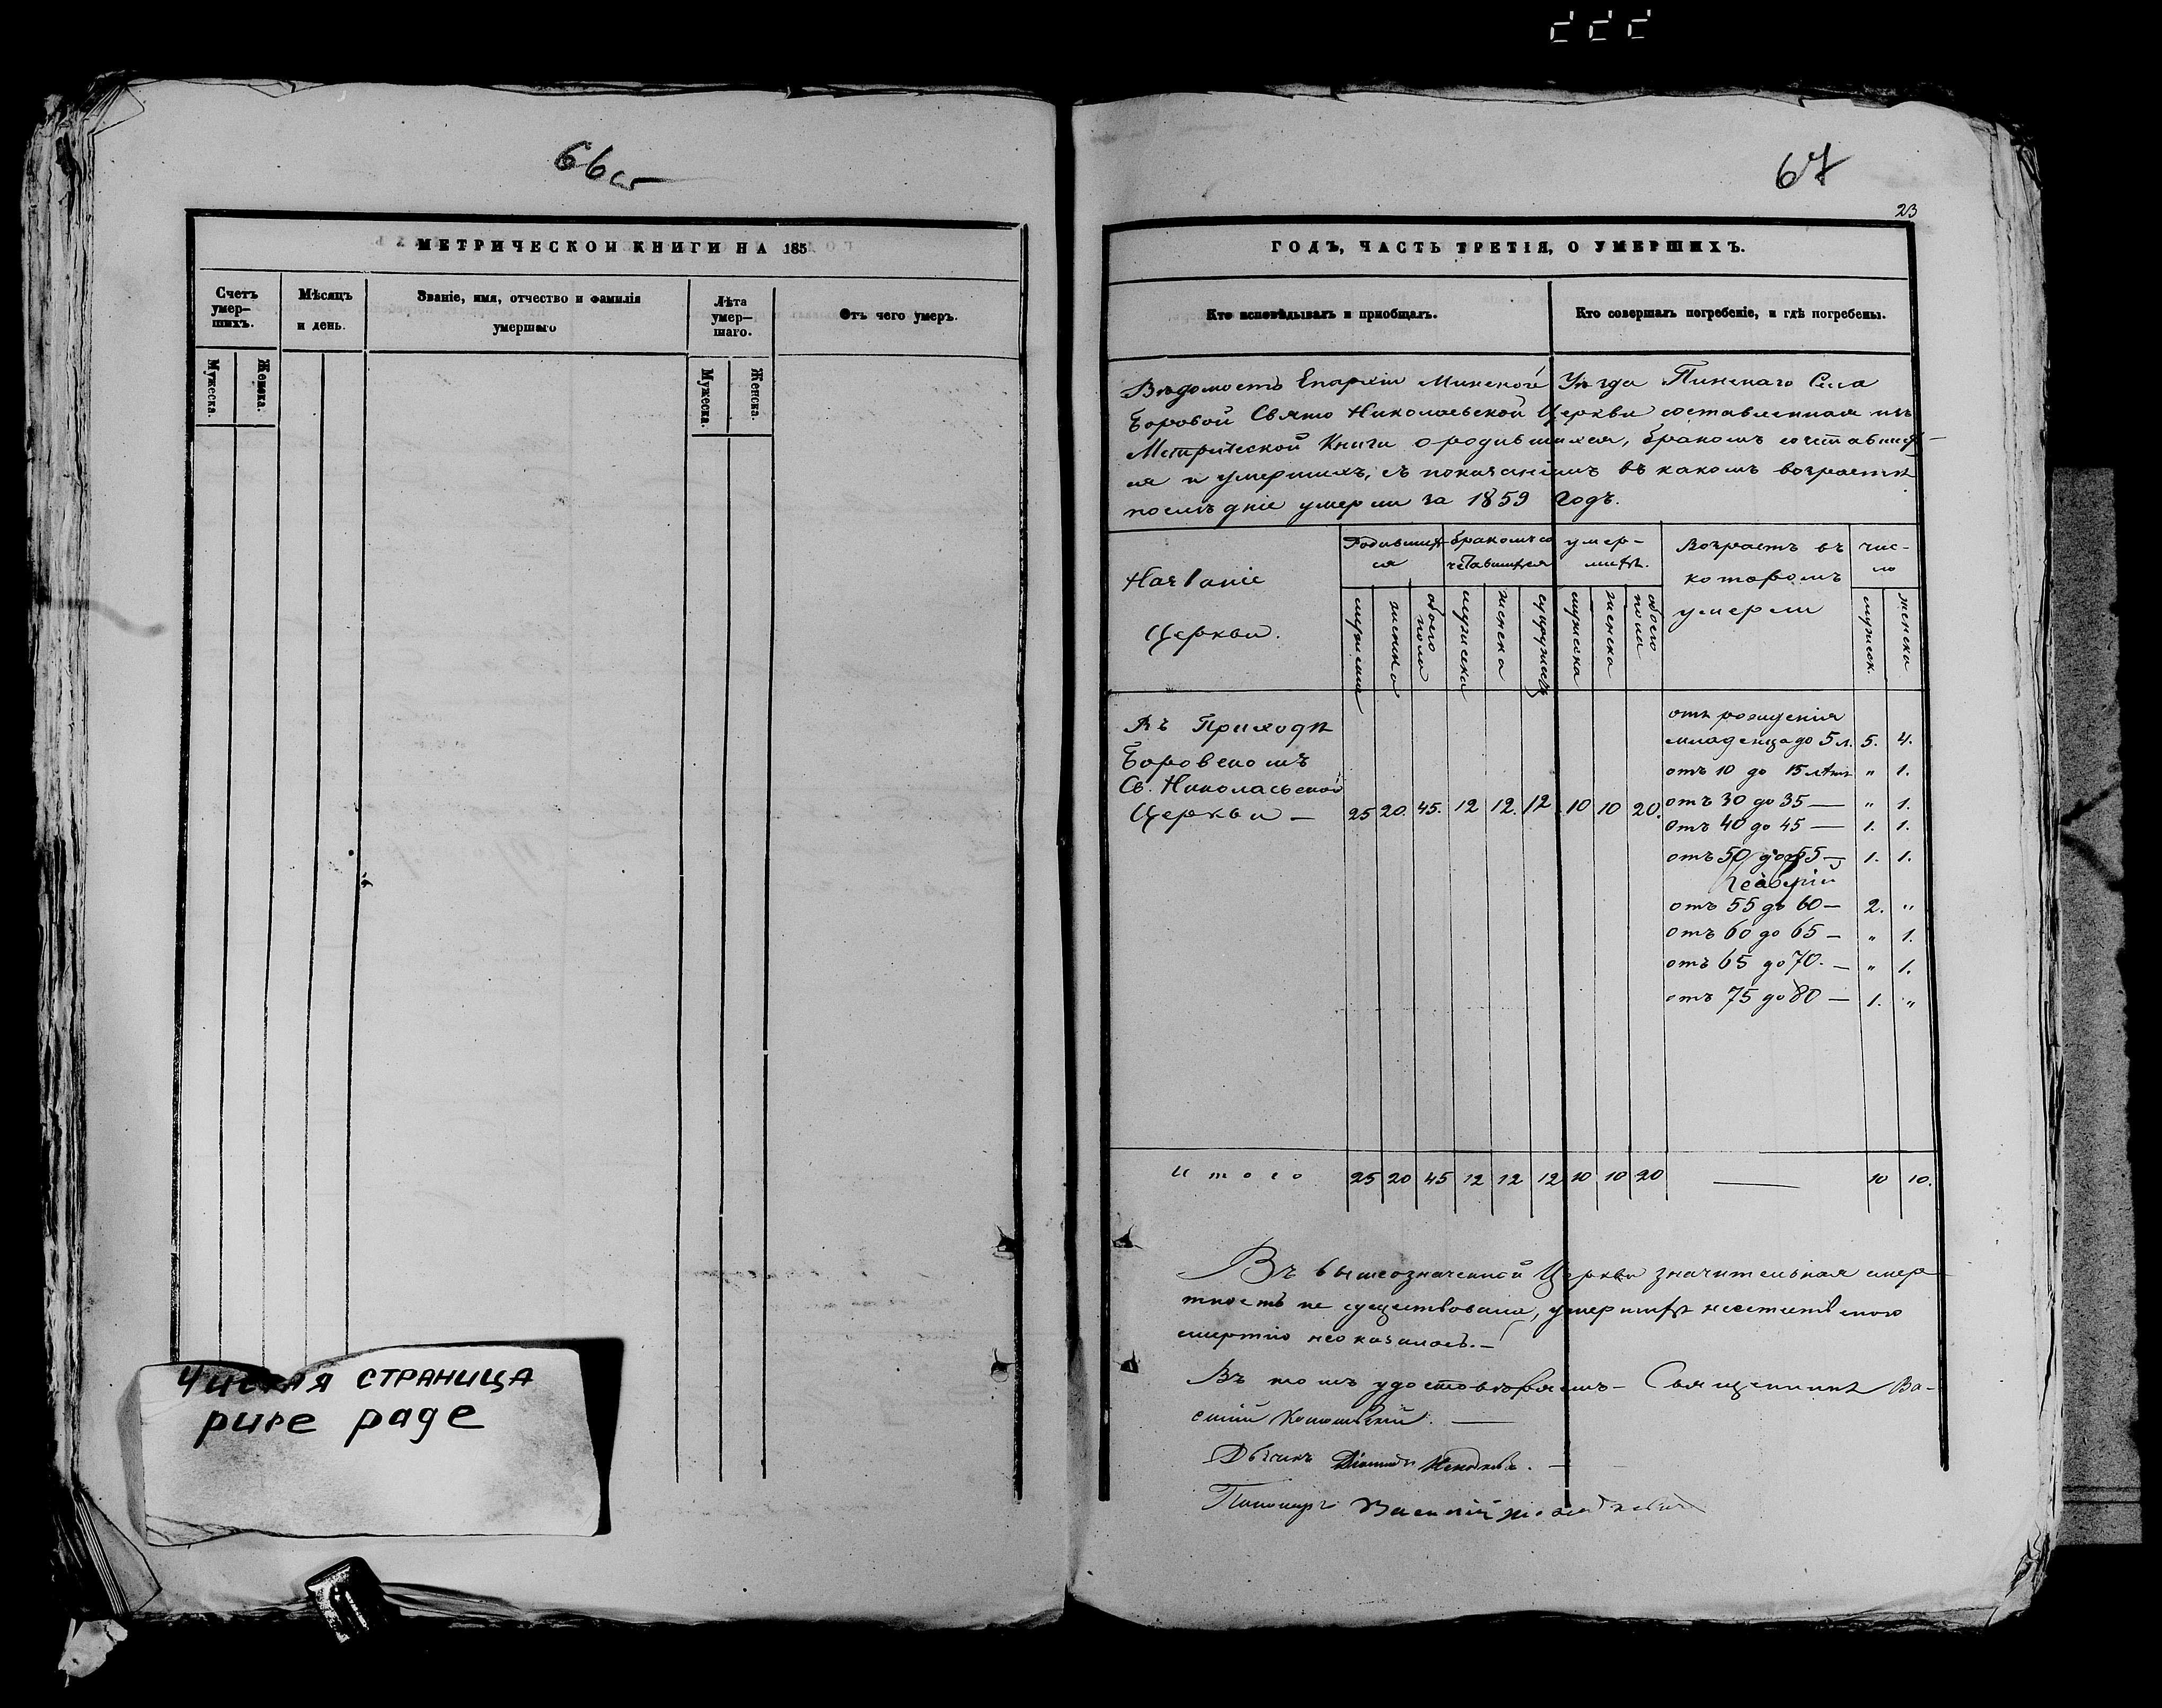 66об
МЕТРИЧЕСКОЙ КНИГИ НА 185
Счетъ умер-шихъ.
Мѣсяцъ и день.
Званіе, имя, отчество и фамилія умершаго
Лѣта умер-шаго.
Отъ чего умеръ.
Мужеска.
Женска.
Мужеска.
Женска.
Чистая СТРАНИЦА
pure page
67
23
ГОДЪ, ЧАСТЬ ТРЕТІЯ, О УМЕРШИХЪ.
Кто исповѣдывалъ и пріобщалъ.
Кто совершалъ погребеніе, и гдѣ погребены.
Вѣдомость Епархіи Минской Уѣзда Пинскаго Села
Боровой Свято Николаевской Церкви составленная изъ
Метрической Книги о родившихся, бракомъ сочетавших-
ся и умершихъ, съ показаніемъ въ какомъ возрастѣ
послѣдніе умерли за 1859 Годъ.
Названіе
Церкви.
Родивших-
ся
бракомъ со
четавшихся
умер-
шихъ.
Возрастъ въ
которомъ
умерли
чис-
ло
мужеска
женска
обоего пола
мужеска
женска
супружест
мужеска
женска
обоего пола
мужск.
женска
Въ Приходѣ
Боровскомъ
Св. Николаевской
Церкви — 25 20. 45. 12 12. 12 10 10 20.
отъ рожденія
младенца до 5 л. 5. 4.
отъ 10 до 15 лѣтъ „ 1.
отъ 30 до 35 — „ 1.
отъ 40 до 45 — 1. 1.
отъ 50 до 55 — 1. 1.
отъ 55 до 60 — 2. „
отъ 60 до 65 — „ 1.
отъ 65 до 70. — „ 1.
отъ 75 до 80 — 1. „
Итого 25 20 45 12 12 12 10 10 20 — 10 10.
Въ вышеозначенной Церкви значительная смер
тность не существовала, умершихъ неестественою
смертію неоказалось. —
Въ томъ удостовѣряемъ — Священникъ Ва-
силій
Дьячикъ
Пономарь Василій